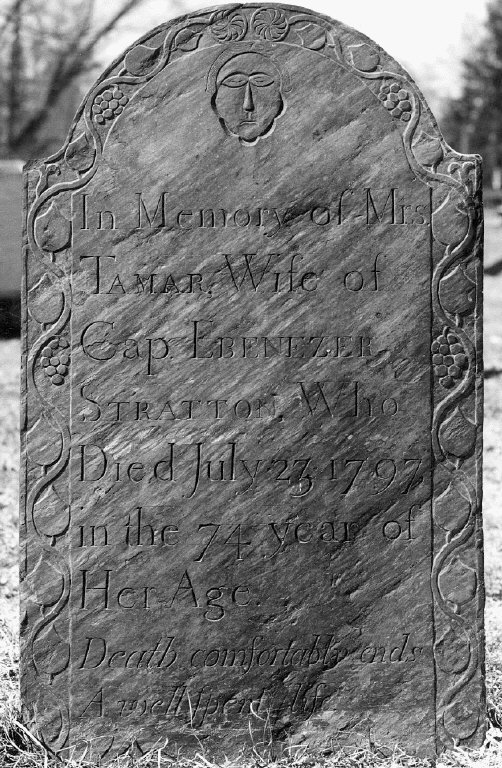 In Memory of Mrs
TAMAR, Wife of
Cap. EBENEZER
STRATTON, Who
Died July 23, 1797,
in the 74 year of
Her Age.
Death comfortably ends
A well ſpent life